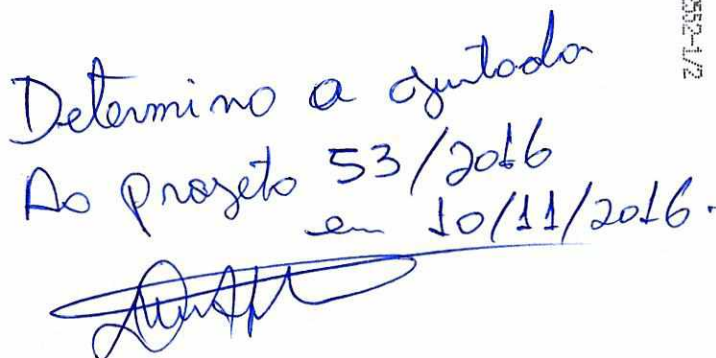 Determino a ajuntada
Ao projeto 53/2016
em 10/11/2016.
2552-1/2